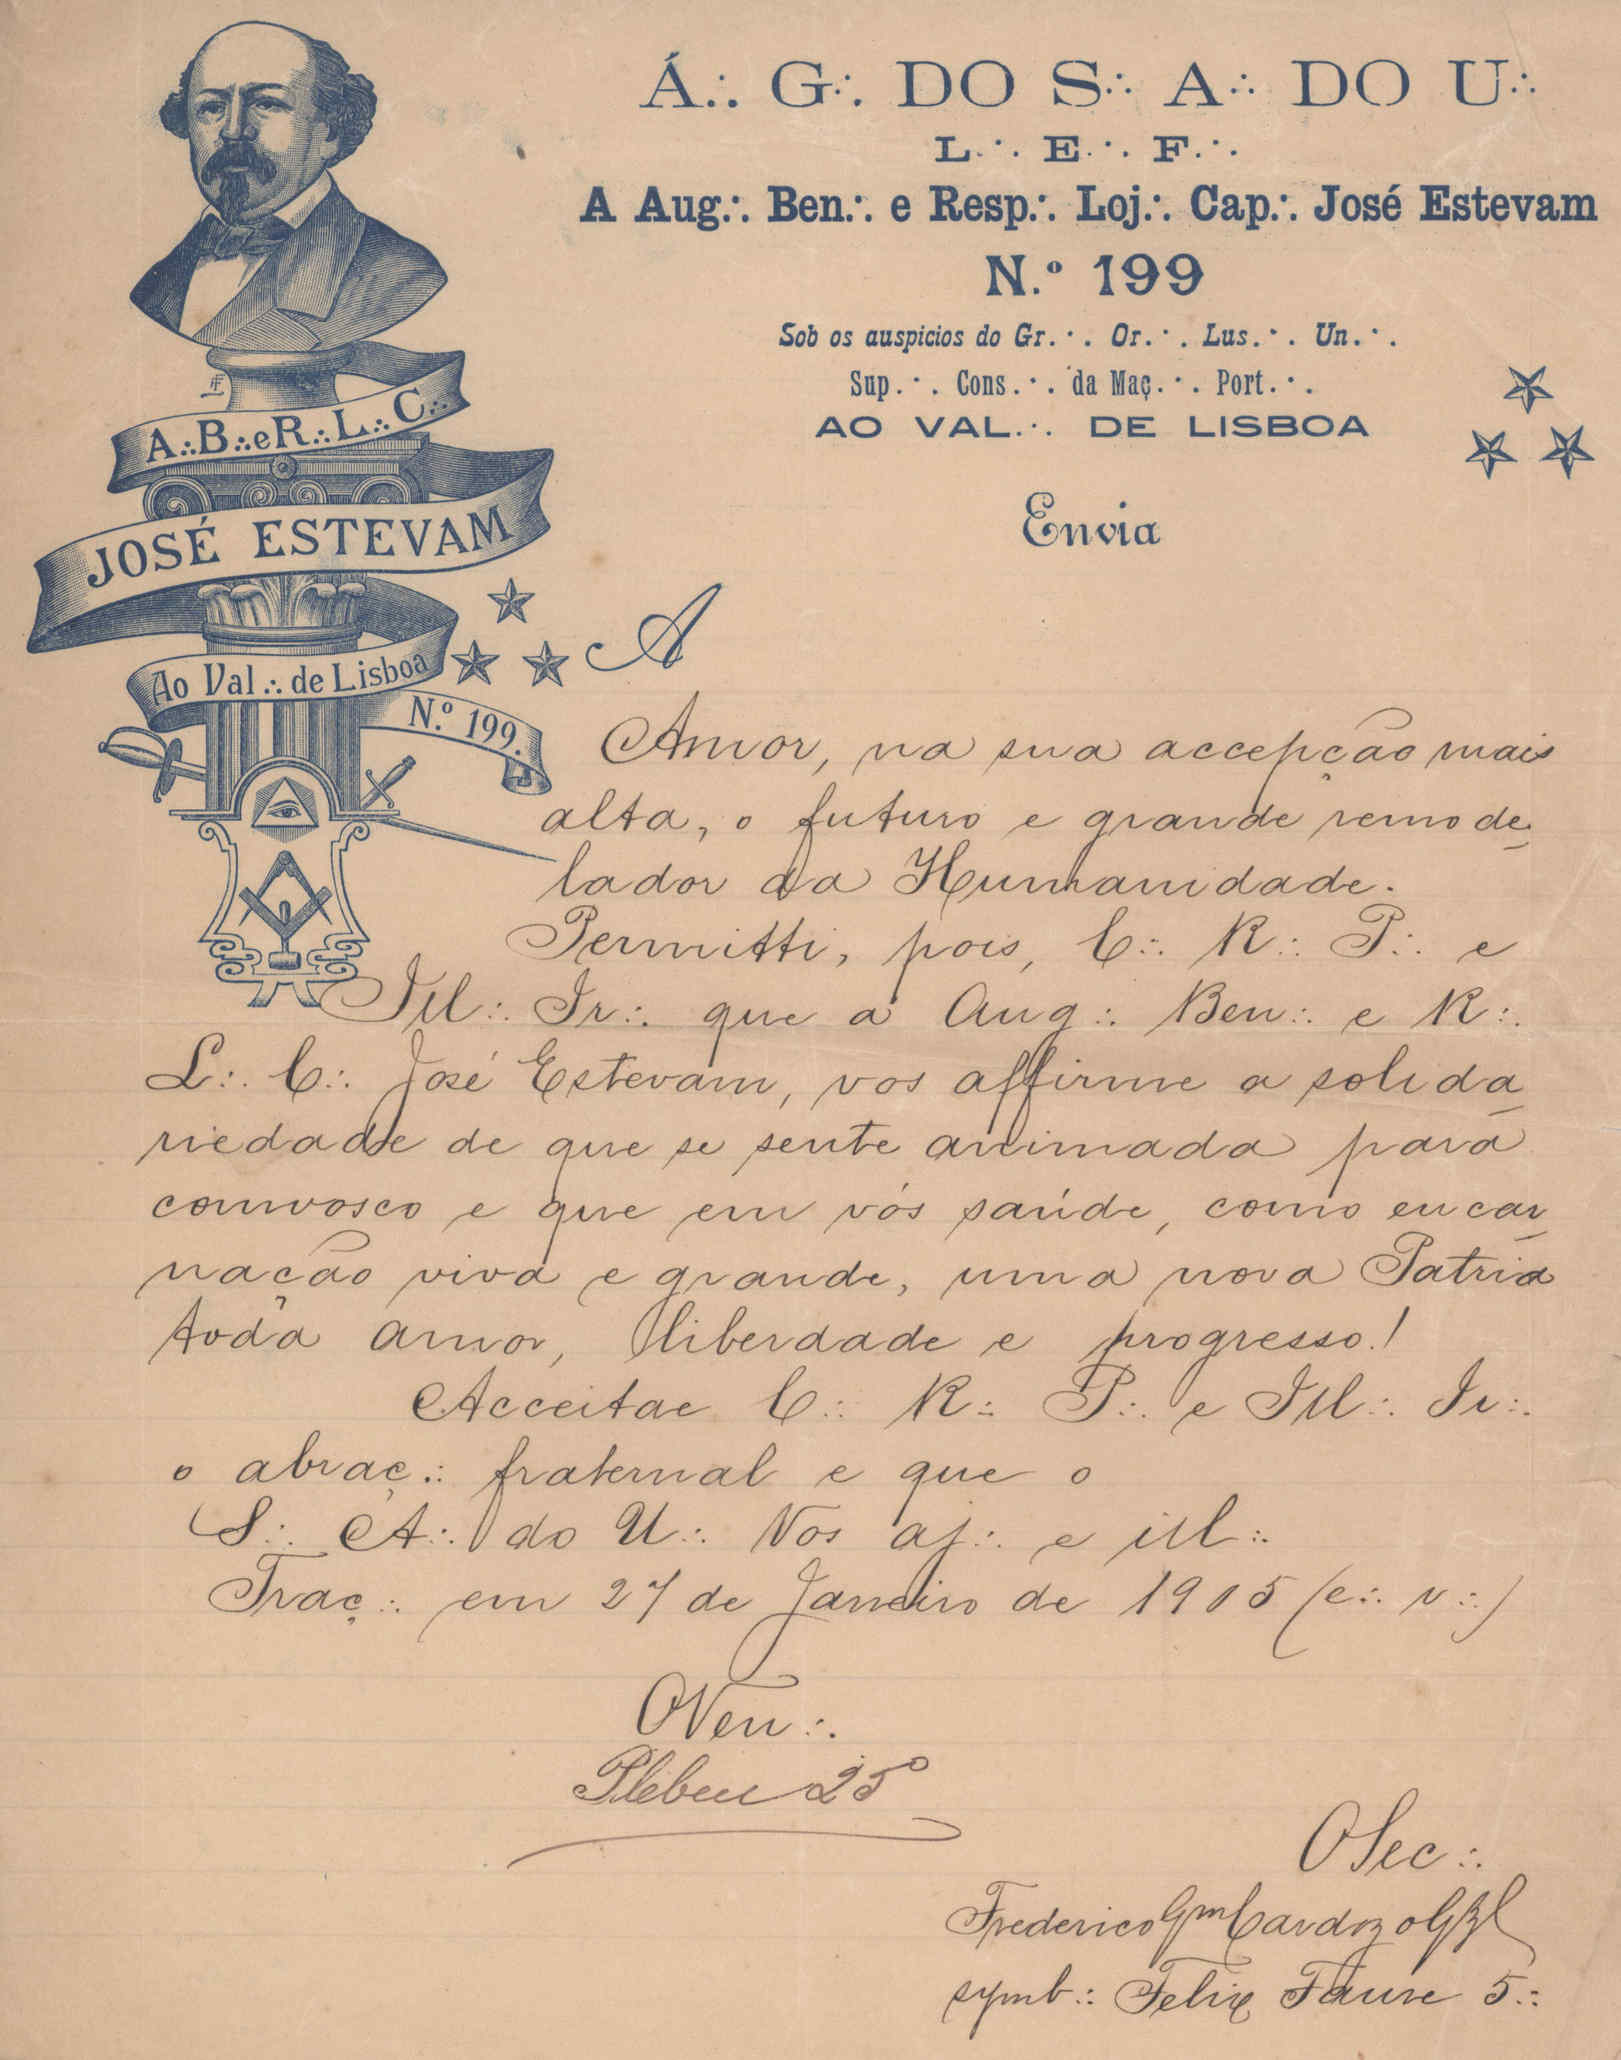 Á∴ G∴ DO S∴ A∴ DO U∴
L∴ E∴ F∴
A Aug∴ Ben∴ e Resp∴ Loj∴ Cap∴ José Estevam
N.º 199
Sob os auspicios do Gr∴ Or∴ Lus∴ Un∴
Sup∴ Cons∴ da Maç∴ Port∴
AO VAL∴ DE LISBOA
Envia
A∴B∴eR∴L∴C∴
JOSÉ ESTEVAM
Ao Val∴ de Lisboa
N.º 199.
A
Amor, na sua accepção mais
alta, o futuro e grande remode-
lador da Humanidade.
Permitti, pois, C∴ R∴ P∴ e
Ill∴ Ir∴ que a Aug∴ Ben∴ e R∴
L∴ C∴ José Estevam, vos affirme a solida-
riedade de que se sente animada para
comvosco e que em vós saúde, como encar-
nação viva e grande, uma nova Patria
toda amor, liberdade e progresso!
Acceitae C∴ R∴ P∴ e Ill∴ Ir∴
o abraç∴ fraternal e que o
S∴ A∴ do U∴ Vos aj∴ e ill∴
Traç∴ em 27 de Janeiro de 1905 (e∴ v∴)
O Ven∴
Plebeu 25º
O Sec∴
Frederico Gm Cardozo
symb∴ Felix Faure 5∴